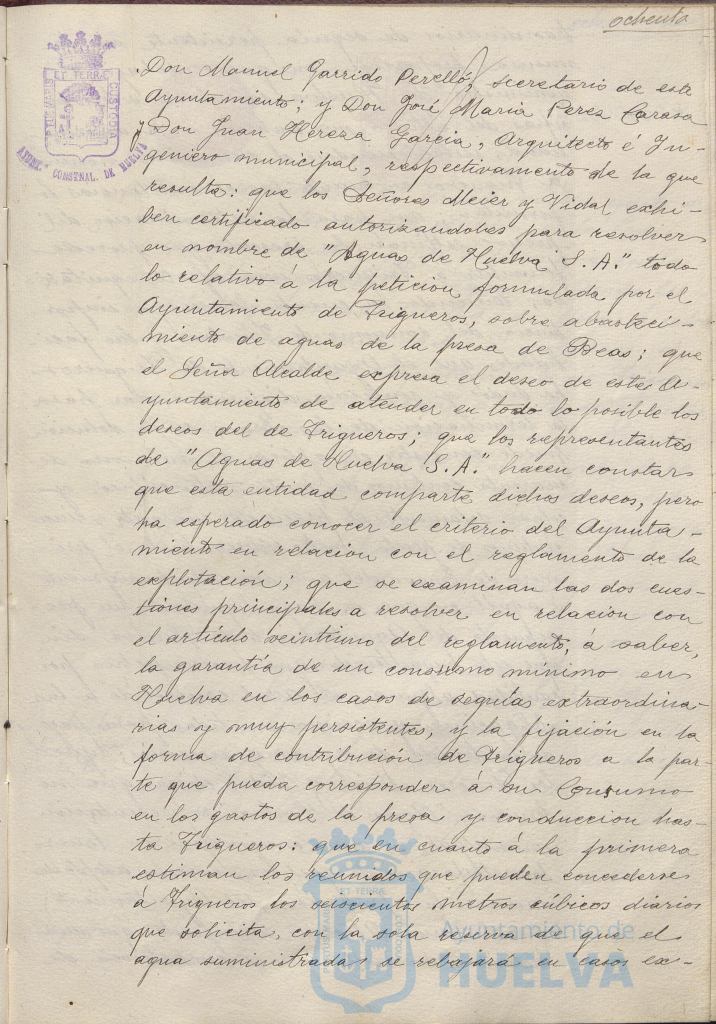 ochenta
PORTUS MARIS ET TERRÆ CUSTODIA
AYUNT.º CONSTNAL. DE HUELVA
Don Manuel Garrido Perelló, secretario de este
Ayuntamiento; y Don José Maria Perez Carasa
y Don Juan Hereza Garcia, Arquitecto é In-
geniero municipal, respectivamente de la que
resulta: que los Señores Meier y Vidal exhi-
ben certificado autorizandoles para resolver
en nombre de "Aguas de Huelva S. A." todo
lo relativo á la peticion formulada por el
Ayuntamiento de Trigueros, sobre abasteci-
miento de aguas de la presa de Beas; que
el Señor Alcalde expresa el deseo de este A-
yuntamiento de atender en todo lo posible los
deseos del de Trigueros; que los representantes
de "Aguas de Huelva S. A." hacen constar
que esta entidad comparte dichos deseos, pero
ha esperado conocer el criterio del Ayunta-
miento en relacion con el reglamento de la
explotación; que se examinan las dos cues-
tiones principales a resolver en relacion con
el artículo veintiuno del reglamento, á saber,
la garantía de un consumo mínimo en
Huelva en los casos de sequias extraordina-
rias y muy persistentes, y la fijación en la
forma de contribución de Trigueros a la par-
te que pueda corresponder á su Consumo
en los gastos de la presa y conduccion has-
ta Trigueros: que en cuanto á la primera
estiman los reunidos que pueden concederse
á Trigueros los seiscientos metros cúbicos diarios
que solicita, con la sola reserva de que el
agua suministrada se rebajará en casos ex-
PORTUS MARIS ET TERRÆ CUSTODIA
Ayuntamiento de
HUELVA